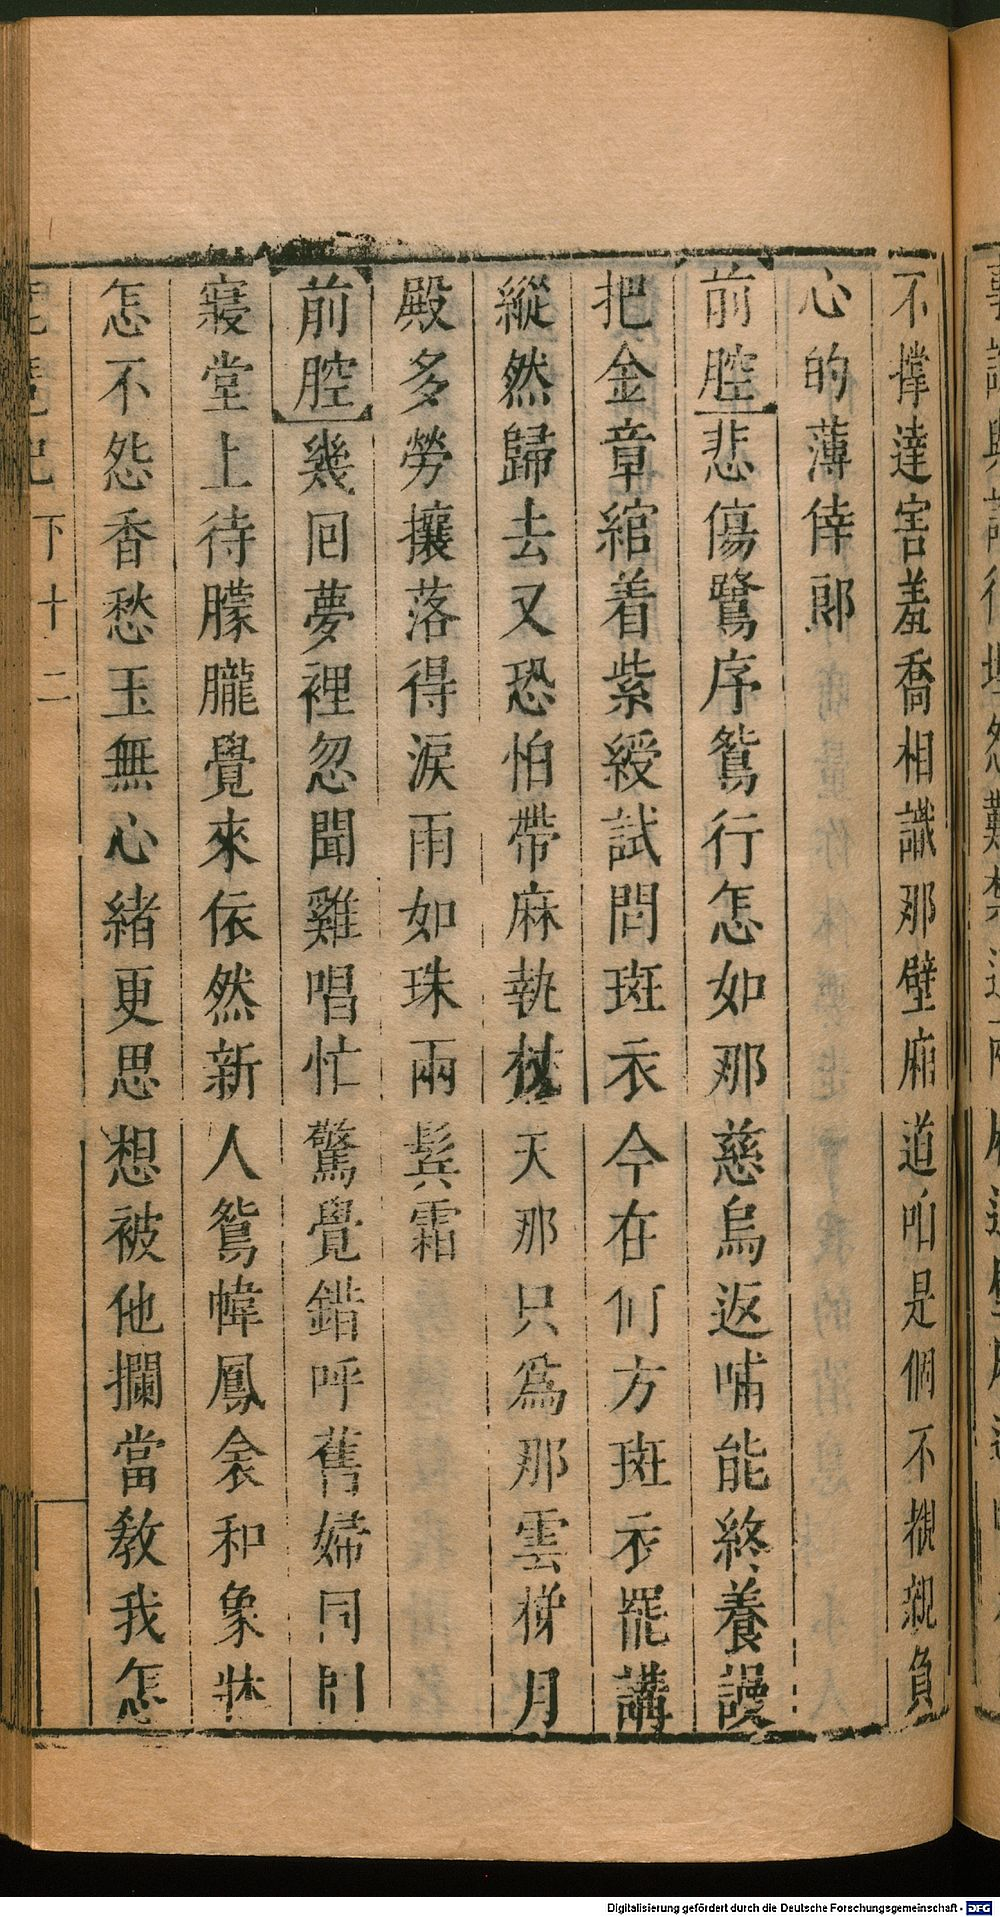 不撑達害羞喬相識那壁廂道咱是個不覩親負
心的薄倖郎
前腔悲傷鷺序鴛行怎如那慈烏返哺能終養謾
把金章綰着紫綬試問斑衣今在何方斑衣罷講
縱然歸去又恐怕帶麻執杖天那只爲那雲梯月
殿多勞攘落得淚雨如珠兩鬂霜
前腔幾回夢裡忽聞雞唱忙驚覺錯呼舊婦同問
寢堂上待朦朧覺來依然新人鴛幃鳳衾和象牀
怎不怨香愁玉無心緒更思想被他攔當敎我怎
琵琶記 下 十二
Digitalisierung gefördert durch die Deutsche Forschungsgemeinschaft - DFG